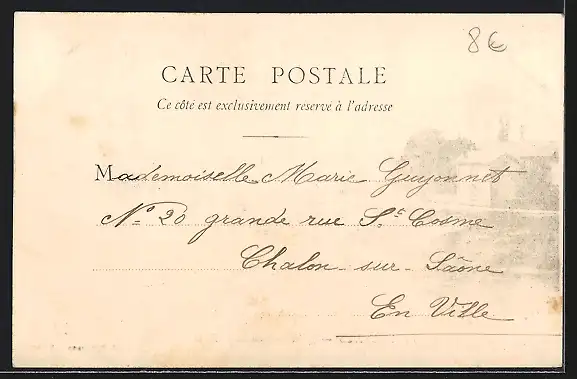 8€
CARTE POSTALE
Ce côté est exclusivement reservé à l'adresse
Mademoiselle Marie Guyonnet
N° 20 grande rue St Cosme
Chalon-sur-Saône
En Ville